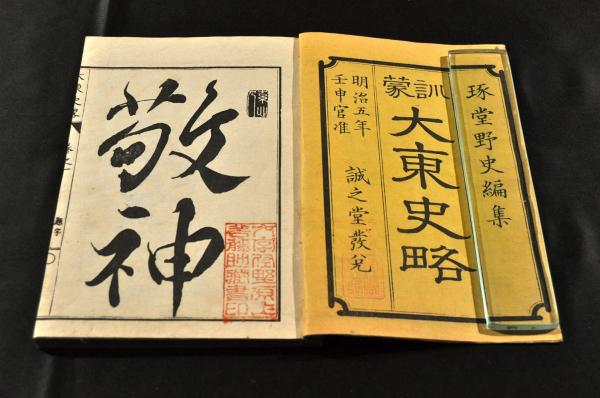 琢堂野史編集
訓蒙
大東史略
明治五年
壬申官准
誠之堂發兌
敬神
題字